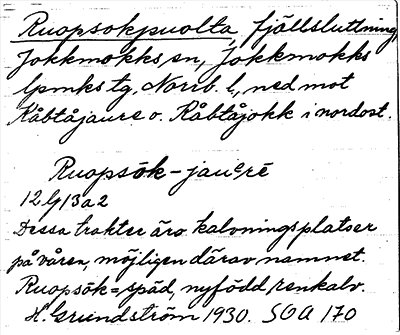 Ruopsokpuolta, fjällsluttning,
Jokkmokks sn, Jokkmokks
lpmks tg, Norrb. l., ned mot
Kåbtåjaure o. Kåbtåjokk i nordost.
Ruopsök-jauᶜrē
12 l̥ 13 a 2
Dessa trakter äro kalvningsplatser
på våren, möjligen därav namnet.
Ruopsök = späd, nyfödd renkalv.
H. Grundström 1930. SOA 170